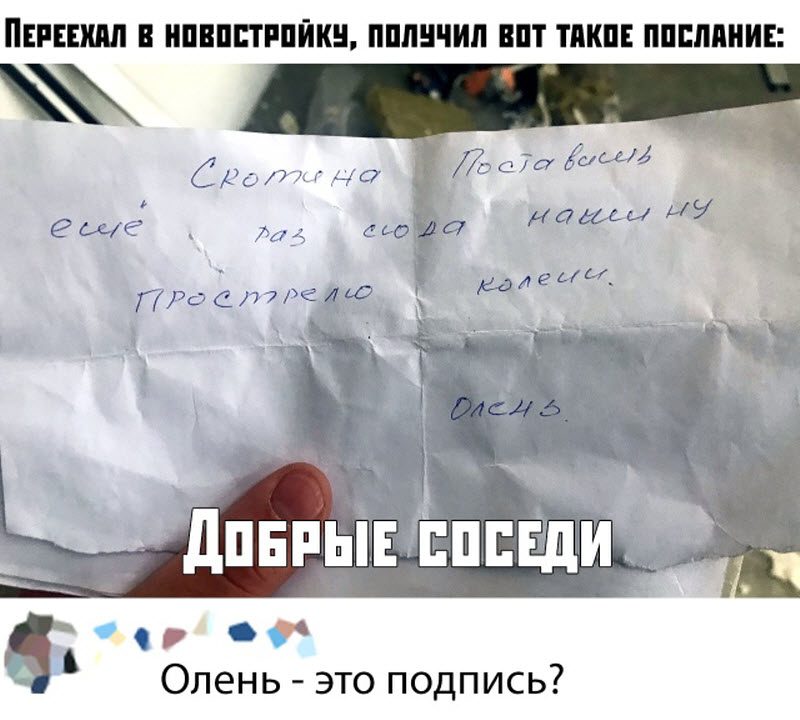 Переехал в новостройку, получил вот такое послание:
Скотина Поставишь
ещё раз сюда машину
прострелю колени.
Олень.
Добрые соседи
Олень - это подпись?